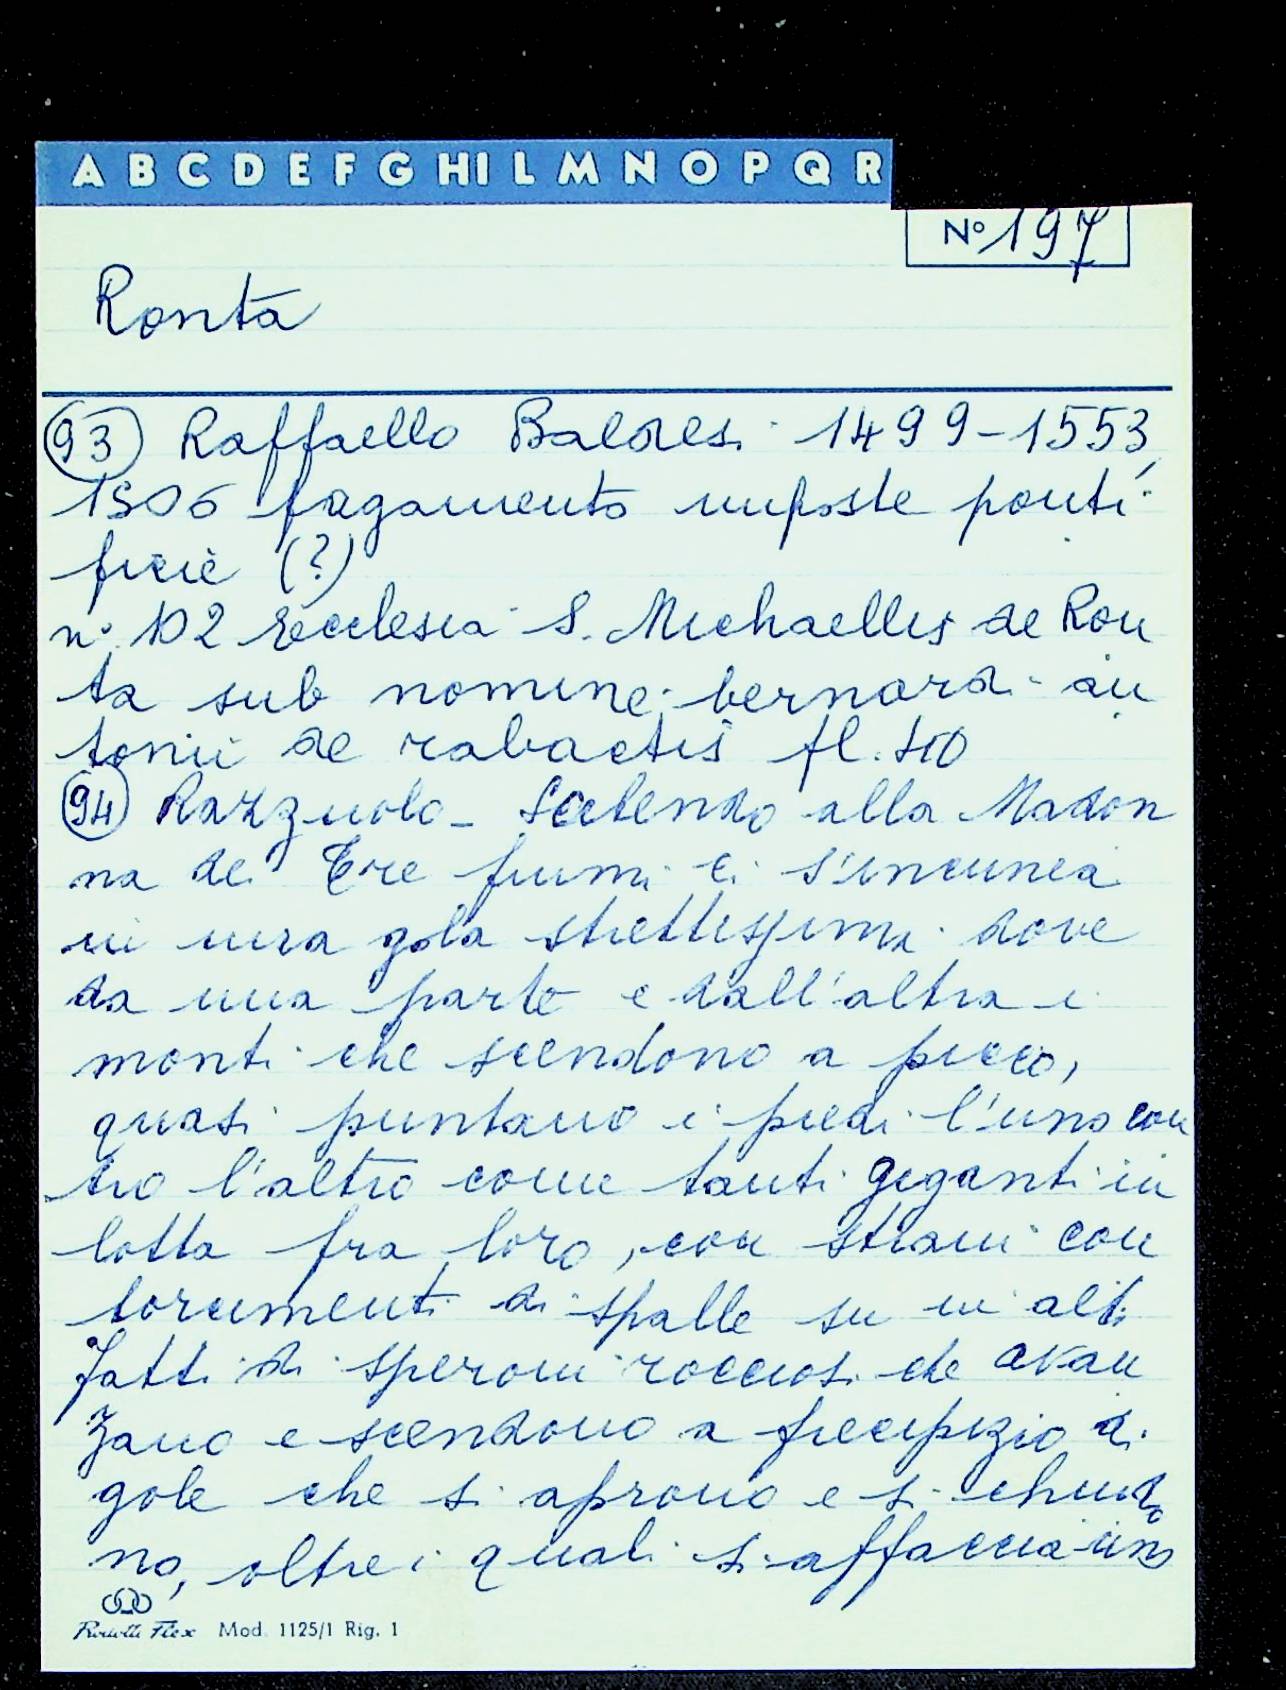 A B C D E F G H I L M N O P Q R
N° 197
Ronta
93 Raffaello Baldesi 1499-1553,
1506 pagamento imposte ponti
ficie (?)
n° 102 Ecclesia S. Michaellis de Ron
ta sub nomine bernardi an
tonii de rabactis fl. 410
94 Razzuolo - Scendendo alla Madon
na dei Tre fiumi ci s'incunea
in una gola strettissima dove
da una parte e dall'altra i
monti che scendono a picco,
quasi puntano i piedi l'uno con
tro l'altro come tanti giganti in
lotta fra loro, con strani con
torcimenti di spalle su in alti
fatti di speroni rocciosi che avan
zano e scendono a precipizio di
gole che si aprono e si chiudo
no, oltre i quali si affaccia un
Flex Mod. 1125/1 Rig. 1